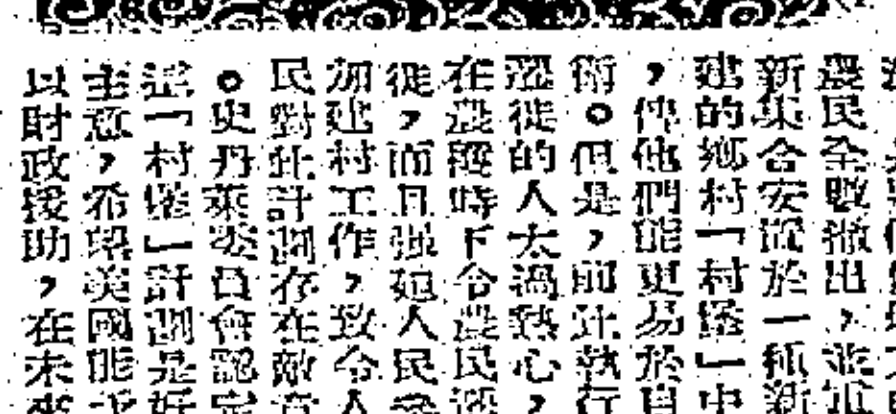 農民全數撤出，並
新集合安置於一種新
建的鄉村「村堡」中
，俾他們能更易於自
衛。但是，前此執行
遷徙的人太過熱心，
在農穫時下令農民遷
徙，而且强廹人民參
加建村工作，致令人
民對此計劃存在敵意
。史丹萊委員會認定
這「村堡」計劃是好
主意，希望美國能予
以財政援助，在未來